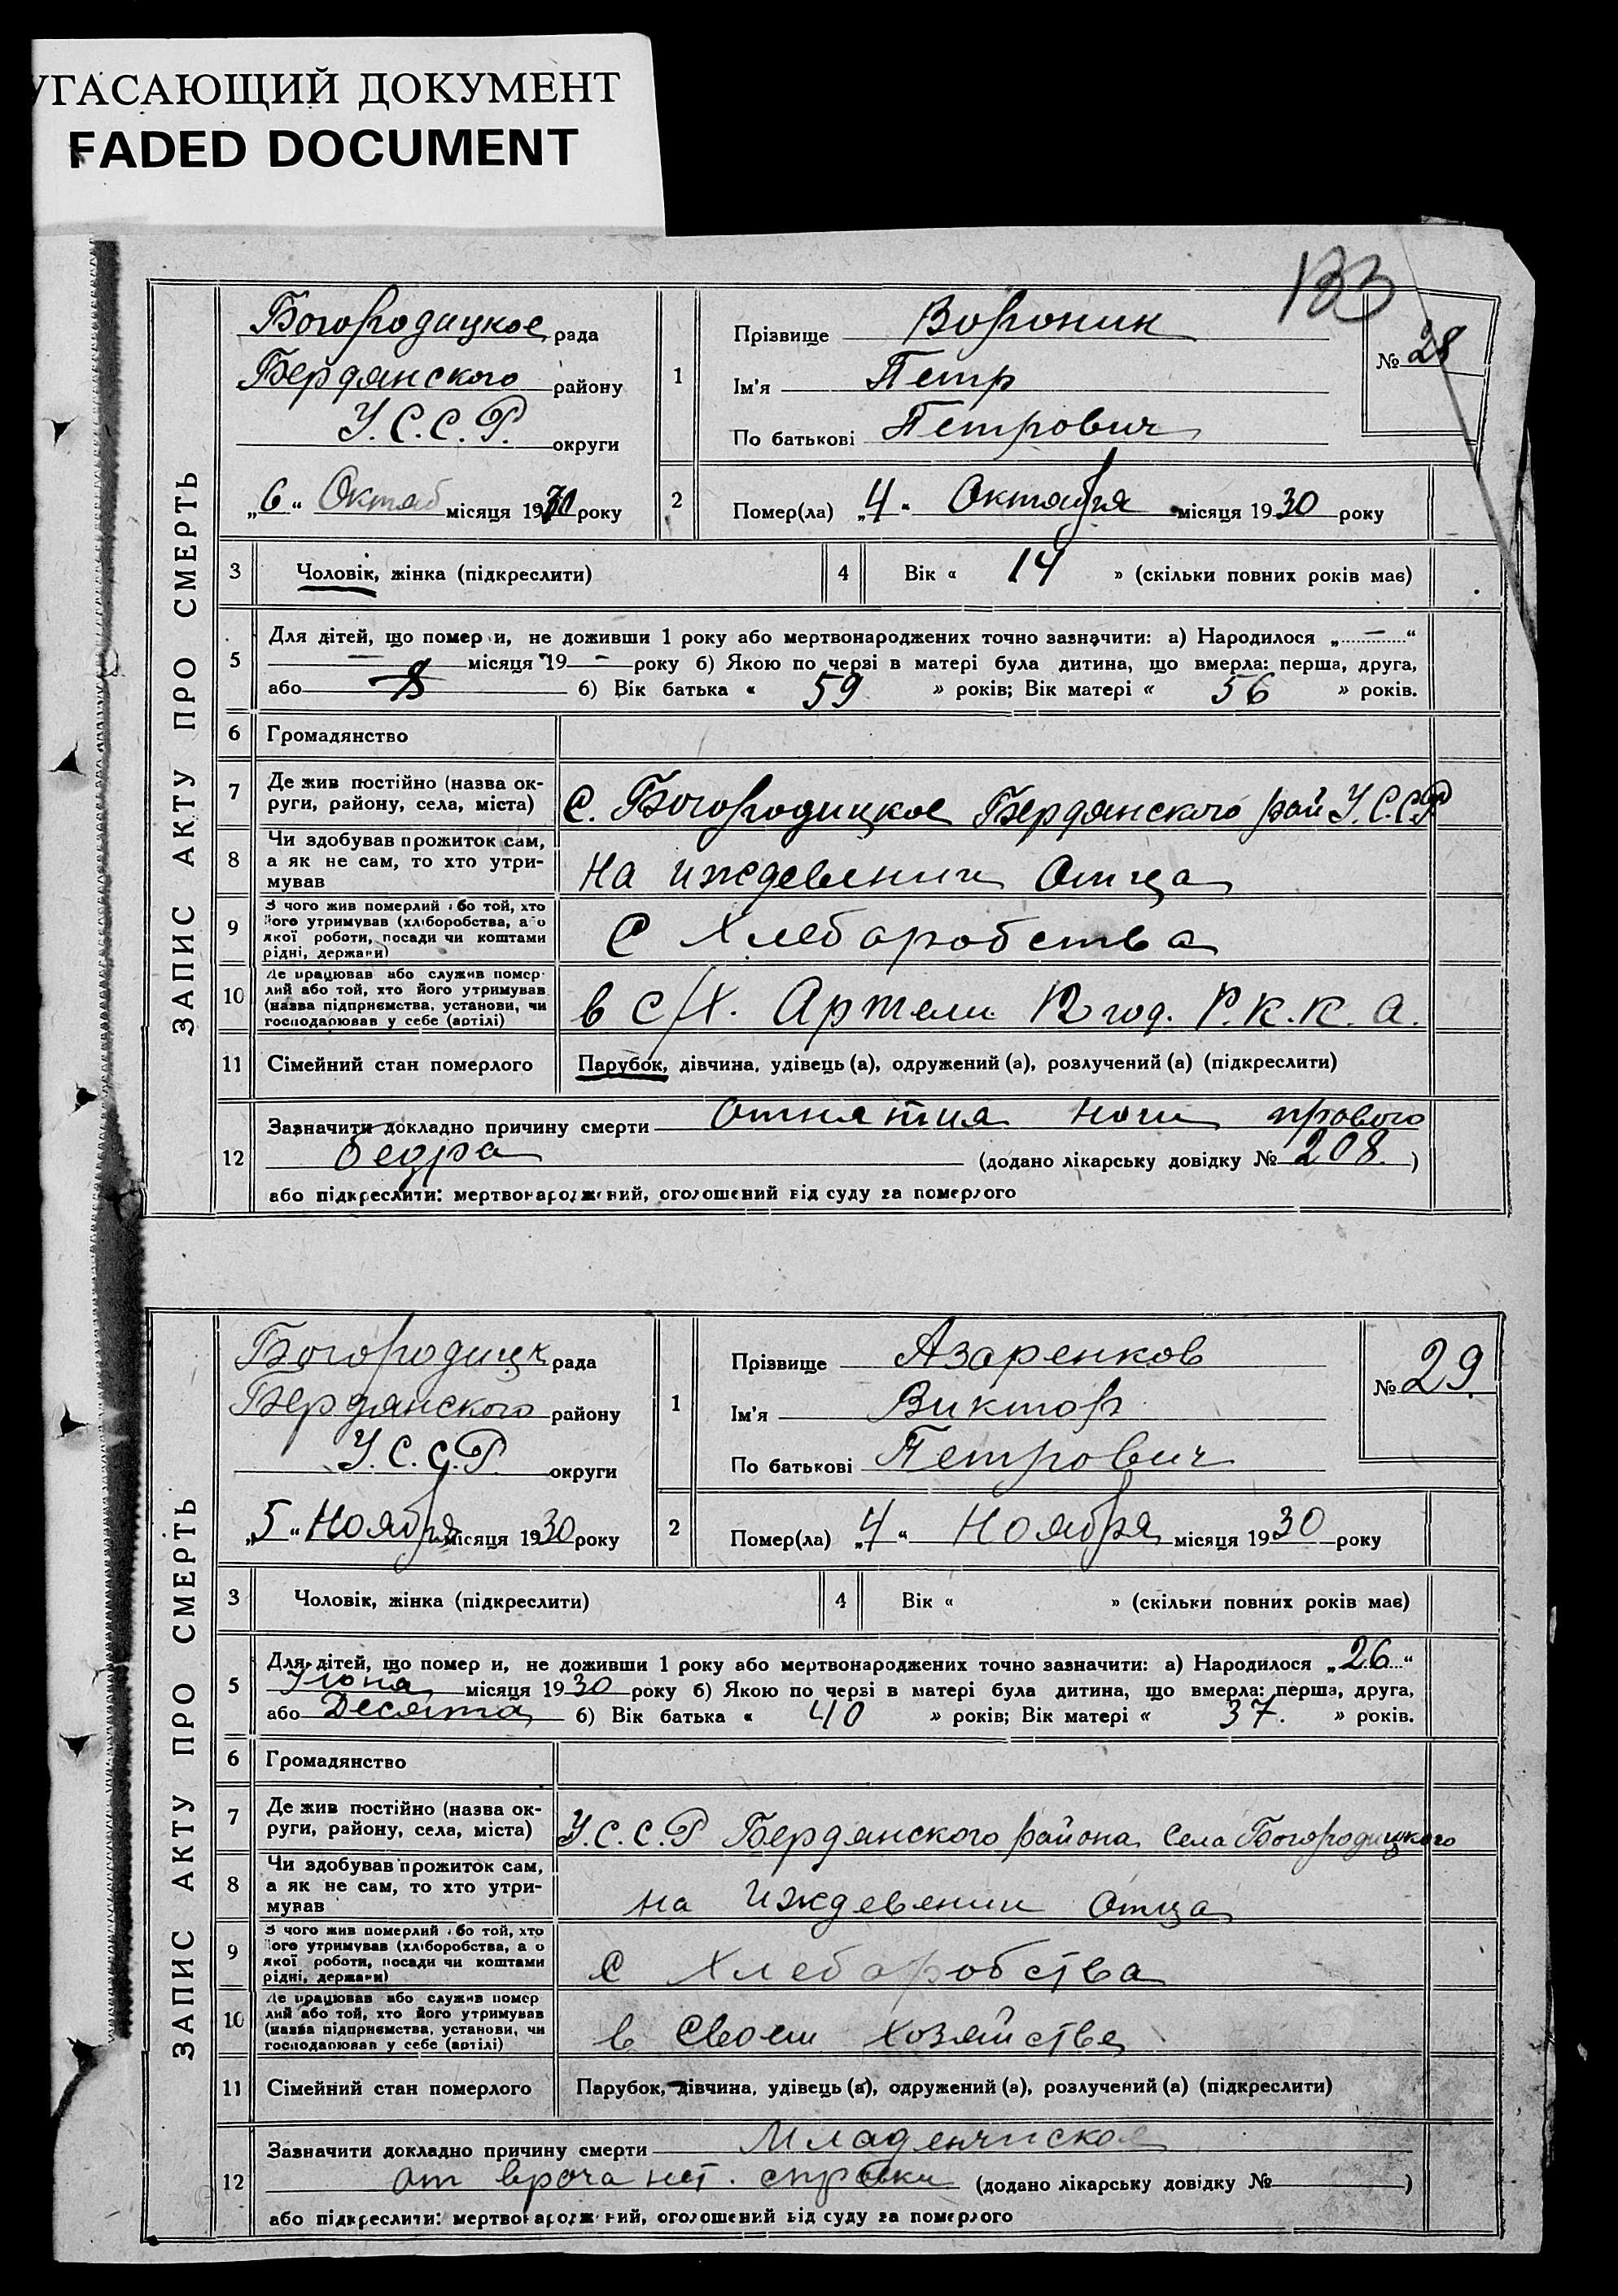 УГАСАЮЩИЙ ДОКУМЕНТ
FADED DOCUMENT
133
ЗАПИС АКТУ ПРО СМЕРТЬ
Богородицкое рада
Бердянского району
У.С.С.Р. округи
„6“ Октяб місяця 1930 року
1
Прізвище Вороник
Ім'я Петр
По батькові Петрович
№ 28
2
Помер(ла) „4“ Октября місяця 1930 року
3 Чоловік, жінка (підкреслити)
4 Вік « 14 » (скільки повних років має)
5 Для дітей, що помер и, не доживши 1 року або мертвонароджених точно зазначити: а) Народилося „ — “
— місяця 19 — року б) Якою по черзі в матері була дитина, що вмерла: перша, друга,
або 8 б) Вік батька « 59 » років; Вік матері « 56 » років.
6 Громадянство
7 Де жив постійно (назва ок-
руги, району, села, міста)
С. Богородицкое Бердянского рай У.С.С.Р
8 Чи здобував прожиток сам,
а як не сам, то хто утри-
мував
На иждевении Отца
9 З чого жив померлий або той, хто
його утримував (хліборобства, або
якої роботи, посади чи коштами
рідні, держави)
С Хлебаробства
10 Де працював або служив помер-
лий або той, хто його утримував
(назва підприємства, установи, чи
господарював у себе (артілі)
в с/х. Артели 12 год. Р.К.К.А.
11 Сімейний стан померлого
Парубок, дівчина, удівець (а), одружений (а), розлучений (а) (підкреслити)
12 Зазначити докладно причину смерти отнятия ноги прового
бедра (додано лікарську довідку № 208.)
або підкреслити: мертвонароджений, оголошений від суду за померлого
ЗАПИС АКТУ ПРО СМЕРТЬ
Богородицк рада
Бердянского району
У.С.С.Р. округи
„5“ Ноября місяця 1930 року
1
Прізвище Азаренков
Ім'я Виктор
По батькові Петрович
№ 29
2
Помер(ла) „4“ Ноября місяця 1930 року
3 Чоловік, жінка (підкреслити)
4 Вік « » (скільки повних років має)
5 Для дітей, що помер и, не доживши 1 року або мертвонароджених точно зазначити: а) Народилося „26“
Июна місяця 1930 року б) Якою по черзі в матері була дитина, що вмерла: перша, друга,
або Десята б) Вік батька « 40 » років; Вік матері « 37. » років.
6 Громадянство
7 Де жив постійно (назва ок-
руги, району, села, міста)
У.С.С.Р Бердянского района Села Богородицкого
8 Чи здобував прожиток сам,
а як не сам, то хто утри-
мував
на иждевении отца
9 З чого жив померлий або той, хто
його утримував (хліборобства, або
якої роботи, посади чи коштами
рідні, держави)
С Хлебаробства
10 Де працював або служив помер
лий або той, хто його утримував
(назва підприємства, установи, чи
господарював у себе (артілі)
в своем хозяйстве
11 Сімейний стан померлого
Парубок, дівчина, удівець (а), одружений (а), розлучений (а) (підкреслити)
12 Зазначити докладно причину смерти Младенчиское
от врача нет. справки (додано лікарську довідку № )
або підкреслити: мертвонароджений, оголошений від суду за померлого